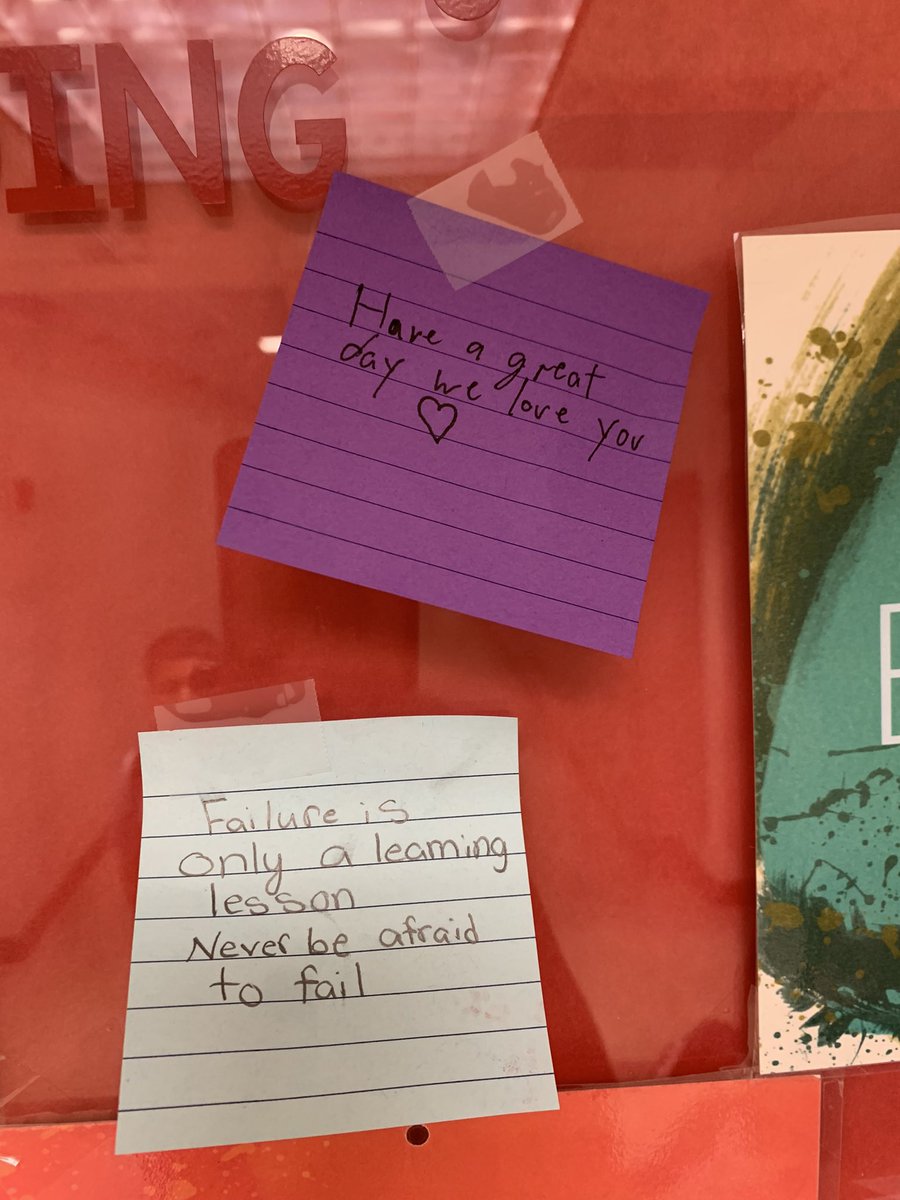 ING
Have a great
day we love you
♡
Failure is
only a learning
lesson
Never be afraid
to fail
E